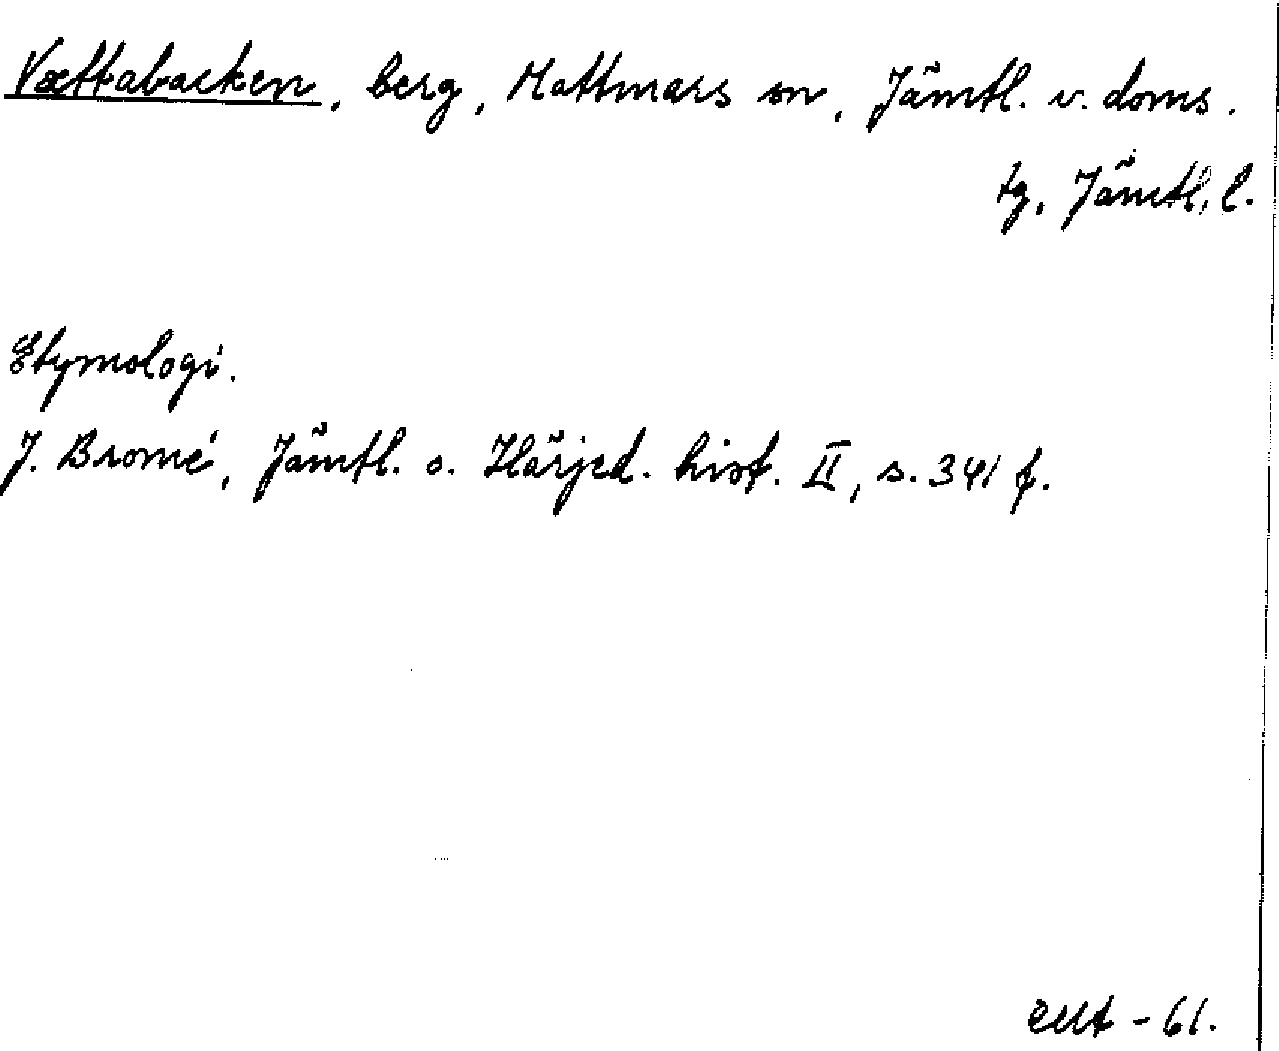 Vættabacken, berg, Mattmars sn, Jämtl. v. doms.
tg, Jämtl. l.
Etymologi.
J. Bromé, Jämtl. o. Härjed. hist. II, s. 341 f.
- 61.